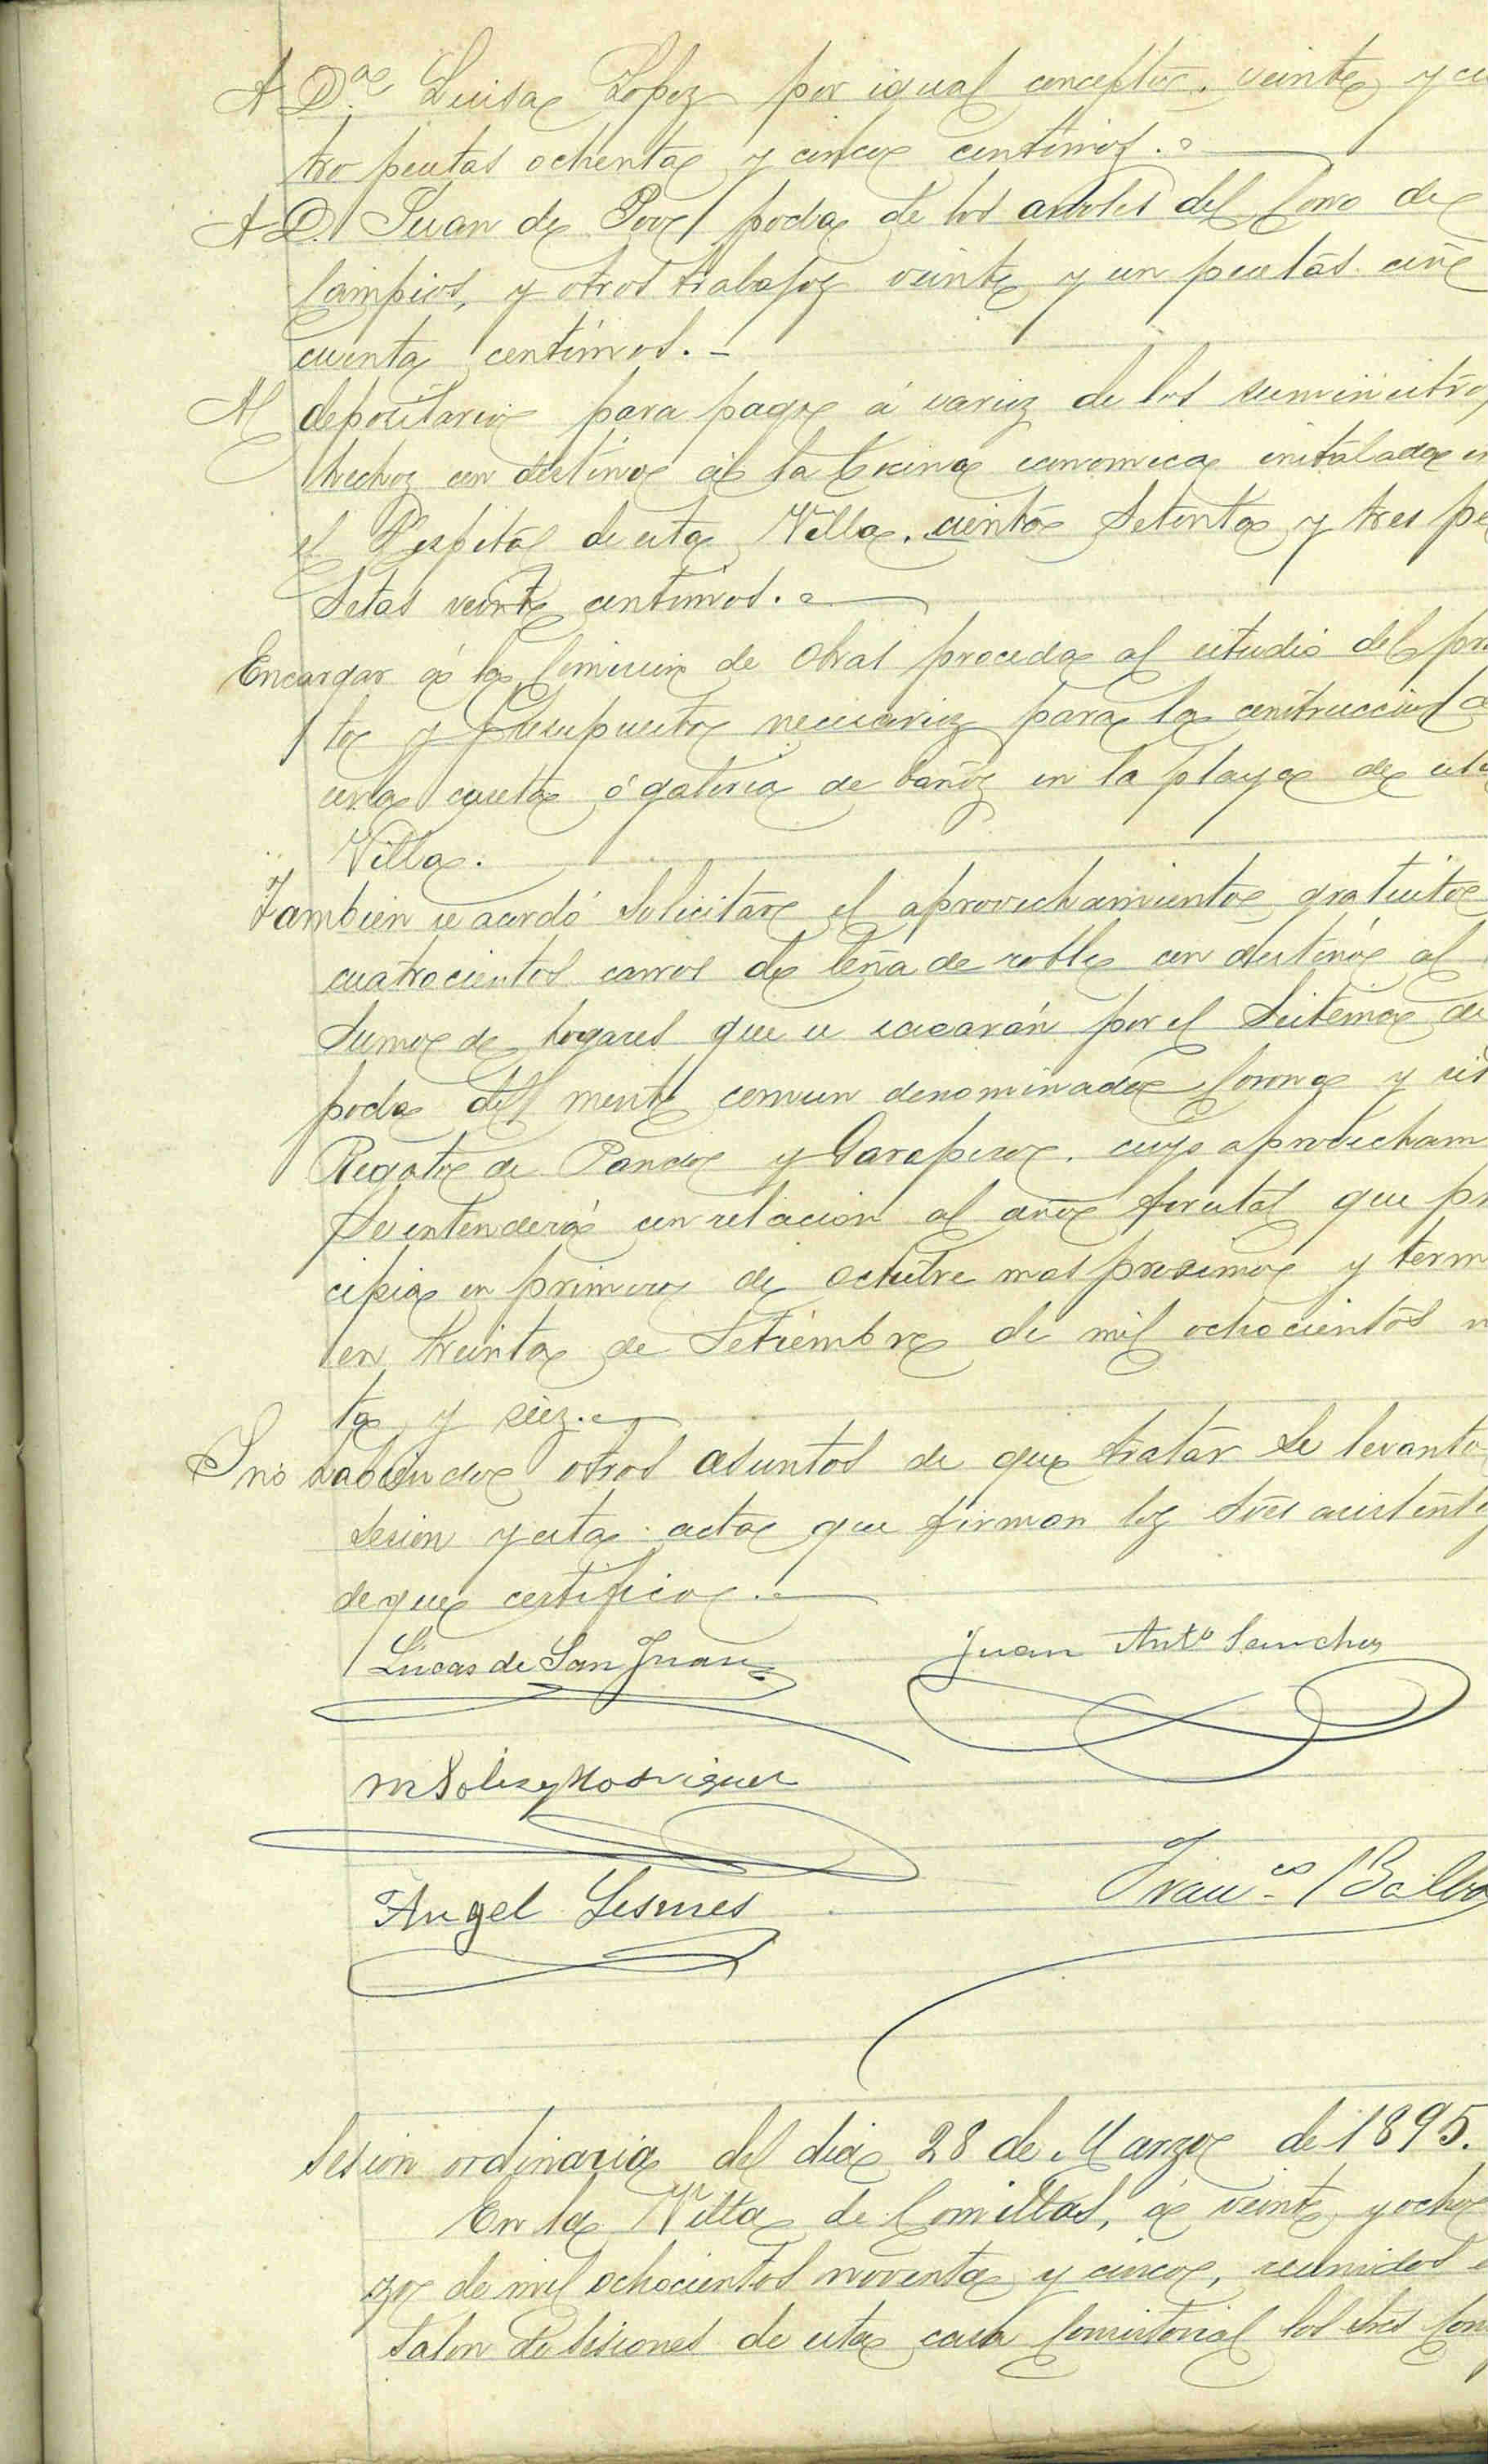 A D.ª Luisa Lopez por igual concepto, veinte y cu
tro pesetas ochenta y cinco centimos.
A D. Juan de Poo, poda de los arboles del Corro de
Campios, y otros trabajos veinte y un pesetas cin
cuenta centimos. -
Al depositario para pago á varios de los suministros
hechos con destino á la Cocina economica instalada en
el Hospital de esta Villa, ciento setenta y tres pe
setas veinte centimos.
Encargar á la Comision de Obras proceda al estudio del pro
to y presupuesto necesarios para la construccion d
una caseta ó galeria de baños en la playa de esta
Villa.
Tambien se acordó solicitar el aprovechamiento gratuito
cuatrocientos carros de leña de roble con destino al
sumo de hogares que se sacarán por el Sistema de
poda del monte comun denominado Corona y sit
Regato de Pando y Garapero. cuyo aprovecham
se entenderá con relacion al año forestal que pr
cipia en primero de octubre mas proximo y term
en treinta de Setiembre de mil ochocientos n
ta y seis.
Y no habiendo otros asuntos de que tratar se levanto
sesion y esta acta que firman los Sres asistentes
de que certifico.
Lucas de San Juan Juan Antº Sanchez
M Solis y Rodriguez
Angel Lesmes Franco Balbo
Sesion ordinaria del dia 28 de Marzo de 1895.
En la Villa de Comillas, á veinte y ocho
zo de mil ochocientos noventa y cinco, reunidos e
Salon de sesiones de esta casa Consistorial los Sres Con